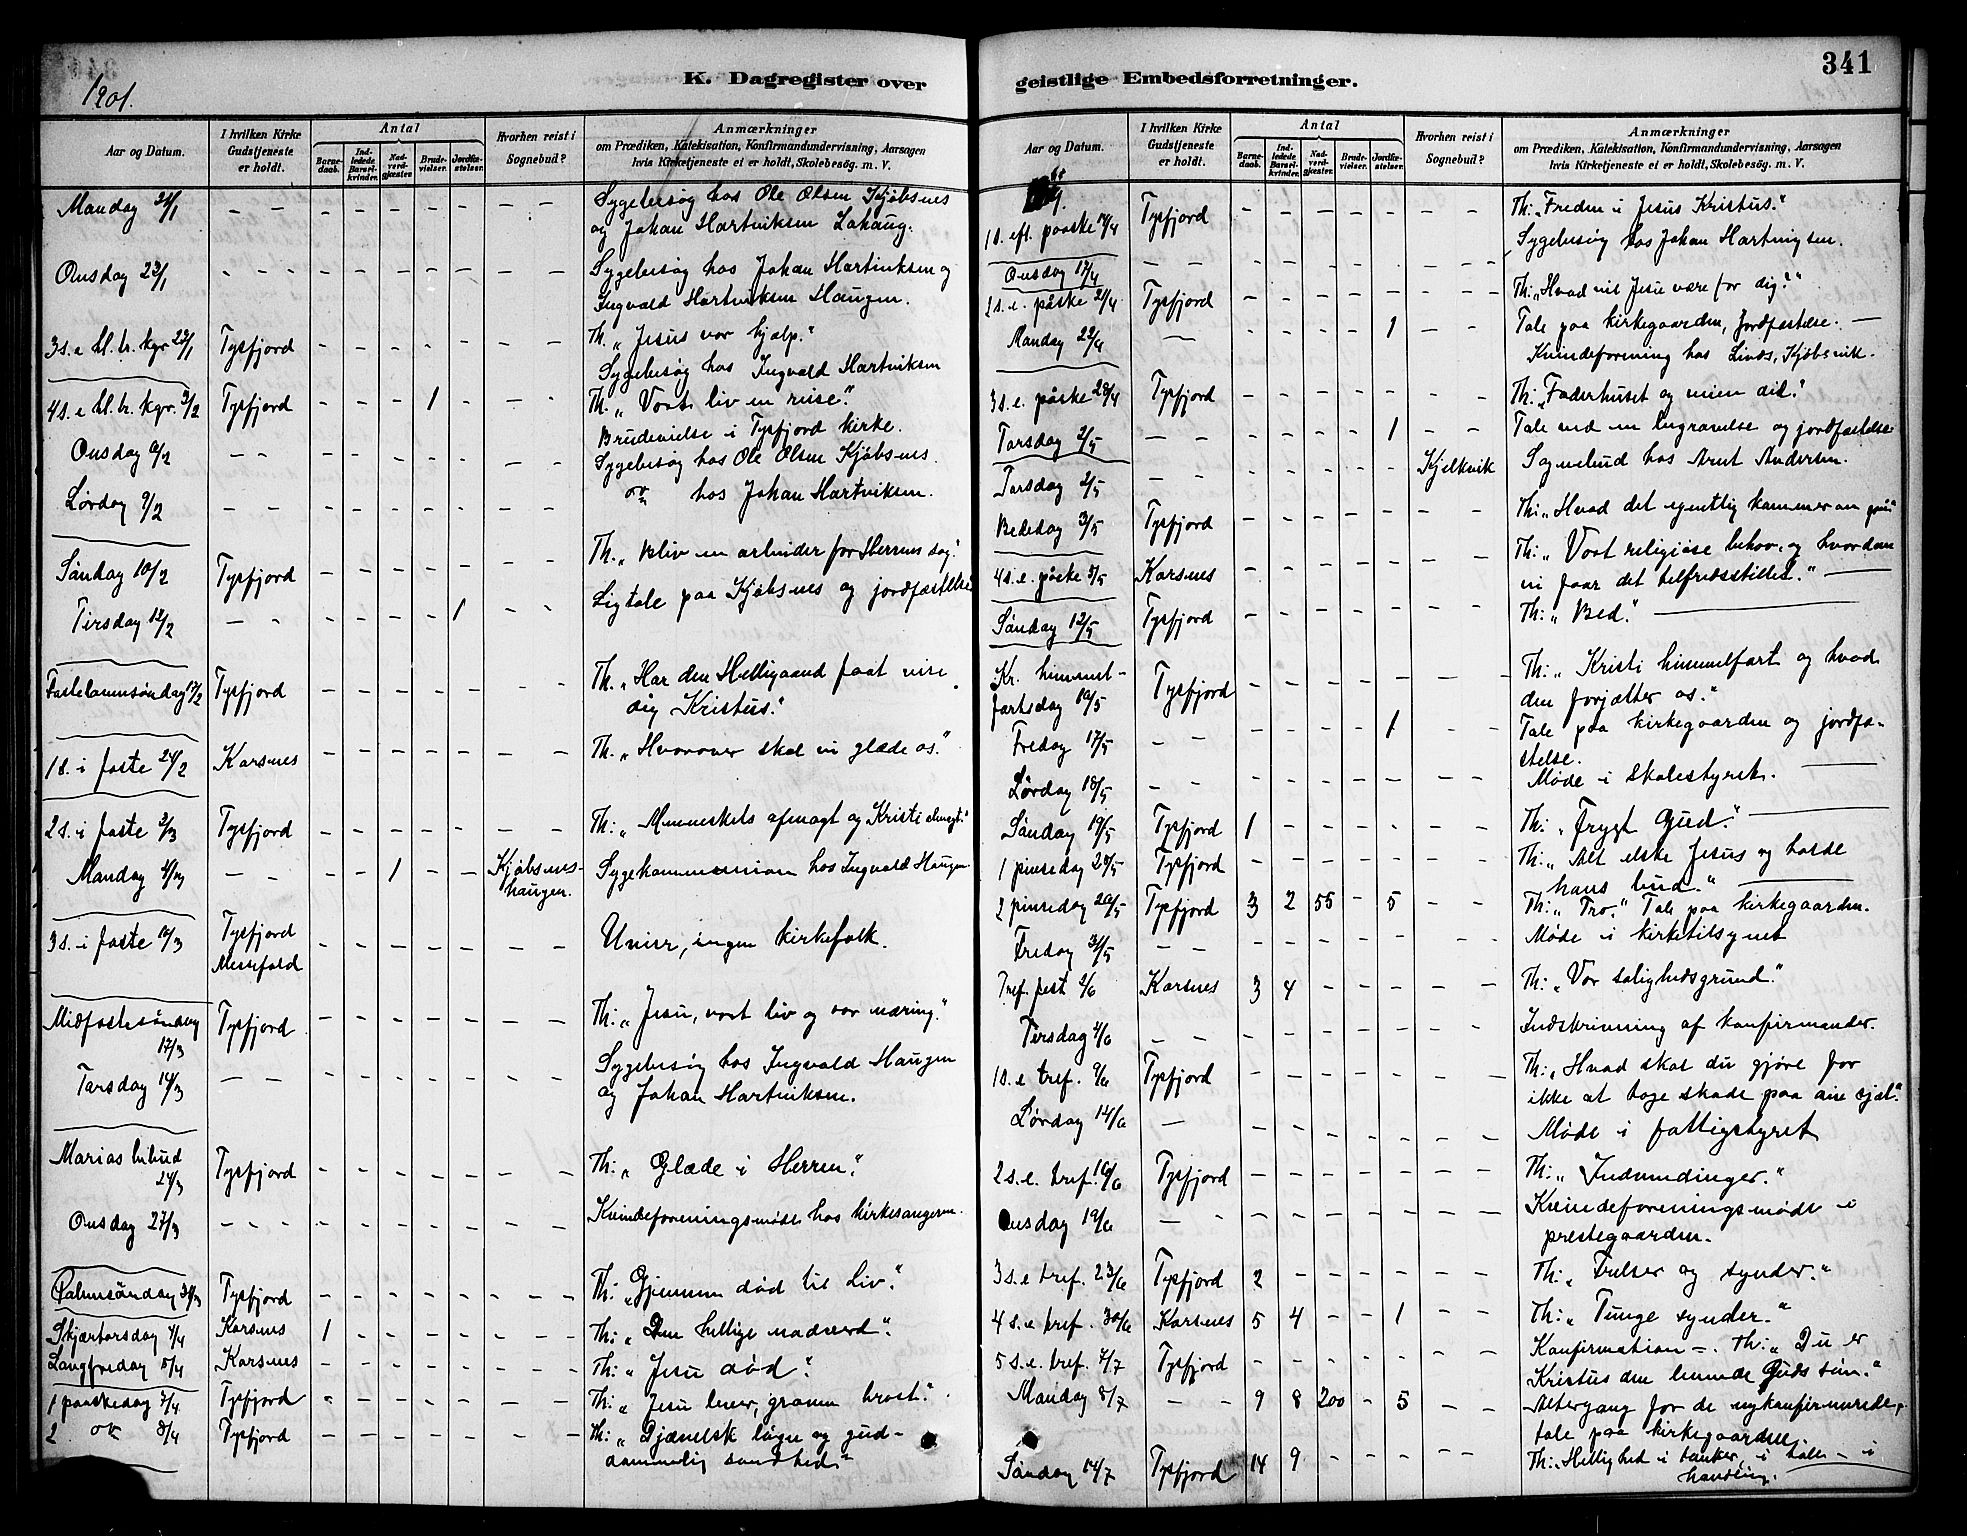 341
1901.
K. Dagregister over geistlige Embedsforretninger.
Aar og Datum.
I hvilken Kirke Gudstjeneste er holdt.
Antal
Barnedaab.
Indledede Barselkvinder.
Nadverdgjester.
Brudevielser.
Jordfæstelser.
Hvorhen reist i Sognebud?
Anmærkninger
om Prædiken, Katekisation, Konfirmandundervisning, Aarsagen
hvis Kirketjeneste et er holdt, Skolebesøg. m. V.
Mandag 21/1 – – – – – – – – – Sygebesøg hos Ole Olsen Kjøbsnes
og Johan Hartviksen Lokaug.
Onsdag 23/1 – – – – – – – – – Sygebesøg hos Johan Hartviksen og
Ingvald Hartviksen Haugen.
3 s. e hl. tr. kgr Tysfjord – – – – – – – Th. „Jesus vor hjælp.“
Sygebesøg hos Ingvald Hartviksen
4 s. e hl. tr. kgr. 3/2 Tysfjord – – – 1 – – – Th. „Vort liv en reise.“
Brudevielse i Tysfjord kirke.
Onsdag 6/2 – – – – – – – – – Sygebesøg hos Ole Olsen Kjøbsnes.
Lørdag 9/2 – – – – – – – – – do hos Johan Hartviksen.
Søndag 10/2 Tysfjord – – – – – – – Th. „Bliv en arbeider for Herrens dag.“
Tirsdag 12/2 – – – – – – 1 – – Ligtale paa Kjøbsnes og jordfæstelse
Fastelavnsøndag 17/2 Tysfjord – – – – – – – Th. „Har den Helligaand faat vise
dig Kristus.“
1 s. i faste 24/2 Karsnes – – – – – – – Th. „Hvorover skal vi glæde os.“
2 s. i faste 3/3 Tysfjord – – – – – – – Th: „Menneskets afmagt og Kristi almagt.“
Mandag 4/3 – – – – – 1 – – Kjøbsneshaugen. Sygekommunion hos Ingvald Haugen
3 s. i faste 10/3 Tysfjord Messefald – – – – – – – Uveir, ingen kirkefolk.
Midfastesøndag 17/3 Tysfjord – – – – – – – Th: „Jesu, vort liv og vor næring.“
Torsdag – – – – – – – – – Sygebesøg hos Ingvald Haugen
og Johan Hartviksen.
Marias bebud 24/3 Tysfjord – – – – – – – Th: „Glæde i Herren“.
Onsdag 27/3 – – – – – – – – – Kvindeforeningsmøde hos kirkesangeren.
Palmesøndag 31/3 Tysfjord – – – – – – – Th: „Gjennem død til Liv“.
Skjærtorsdag 4/4 Karsnes 1 – – – – – – Th: „Den hellige nadverd“.
Langfredag 5/4 Karsnes – – – – – – – Th: „Jesu død“.
1 paaskedag 7/4 Tysfjord – – – – – – – Th: „Jesu lever, graven brast“.
2 do 8/4 Tysfjord – – – – – – – Th: „Djævelsk løgn og guddommelig sandhed.“
Aar og Datum.
I hvilken Kirke Gudstjeneste er holdt.
Antal
Barnedaab.
Indledede Barselkvinder.
Nadverdgjester.
Brudevielser.
Jordfæstelser.
Hvorhen reist i Sognebud?
Anmærkninger
om Prædiken, Katekisation, Konfirmandundervisning, Aarsagen
hvis Kirketjeneste et er holdt, Skolebesøg. m. V.
1 s. eft. paaske 14/4 Tysfjord – – – – – – – Th: „Freden i Jesus Kristus.“
Onsdag 17/4 – – – – – – – – – Sygebesøg hos Johan Hartvigsen.
2 s. e. påske 21/4 Tysfjord – – – – – – – Th: „Hvad vil Jesu være for dig?“
Mandag 22/4 – – – – – 1 – – Tale paa kirkegaarden, Jordfæstelse. –
Kvindeforening hos Kjøbsvik.
3 s. e. påske 28/4 Tysfjord – – – – – – – Th: „Faderhuset og veien did.“
Torsdag 2/5 – – – – – – 1 – – Tale ved en begravelse og jordfæstelse
Torsdag 2/5 – – – – – – – Kjelkvik Sognebud hos Arnt Andersen.
Bededag 3/5 Tysfjord – – – – – – – Th: „Hvad det egentlig kommer an paa“
4 s. e. påske 5/5 Karsnes – – – – – – – Th: „Vort religiøse behov, og hvordan
vi faar det tilfredsstillet.“ –
Søndag 12/5 Tysfjord – – – – – – – Th: „Bed.“ –
Kr. himmelfartsdag 16/5 Tysfjord – – – – – – – Th: „Kristi himmelfart og hvad
den forjætter os.“
Fredag 17/5 – – – – – – 1 – – Tale paa kirkegaarden og jordfæstelse.
Lørdag 18/5 – – – – – – – – – Møde i skolestyret. –
Søndag 19/5 Tysfjord 1 – – – – – – Th: „Frygt Gud.“ –
1 pinsedag Tysfjord – – – – – – – Th: „At elske Jesus og holde
hans bud.“ –
2 pinsedag Tysfjord 3 2 55 – 5 – – Th: „Tro.“ Tale paa kirkegaarden.
Fredag 31/5 – – – – – – – – – Møde i kirketilsynet
Tref. fest 2/6 Karsnes 3 4 – – – – – Th: „Vor salighedsgrund.“
Tirsdag 4/6 – – – – – – – – – Indskrivning af konfirmander.
1 s. e tref. 9/6 Tysfjord – – – – – – – Th: „Hvad skal du gjøre for
ikke at tage skade paa din sjæl.“
Lørdag 14/6 – – – – – – – – Møde i fattigstyret
2 s. e. tref. 16/6 Tysfjord – – – – – – – Th: „Indvendinger.“
Onsdag 19/6 – – – – – – – – – Kvindeforeningsmøde i
prestegaarden.
3 s. e tref. 23/6 Tysfjord 2 – – – – – – Th: „Frelser og synder.“
4 s. e tref. 30/6 Karsnes 5 4 – – 1 – – Th: „Tunge synder.“
5 s. e. tref. 7/7 Tysfjord – – – – – – – Konfirmation –. Th: „Du er
Kristus den levende Guds søn.“
Mandag 8/7 – – 9 8 200 – 5 – – Altergang for de nykonfirmerede,
tale paa kirkegaarden
Søndag 14/7 Tysfjord 14 9 – – – – – Th: „Hellighed i tanker, i tale – i
handling.